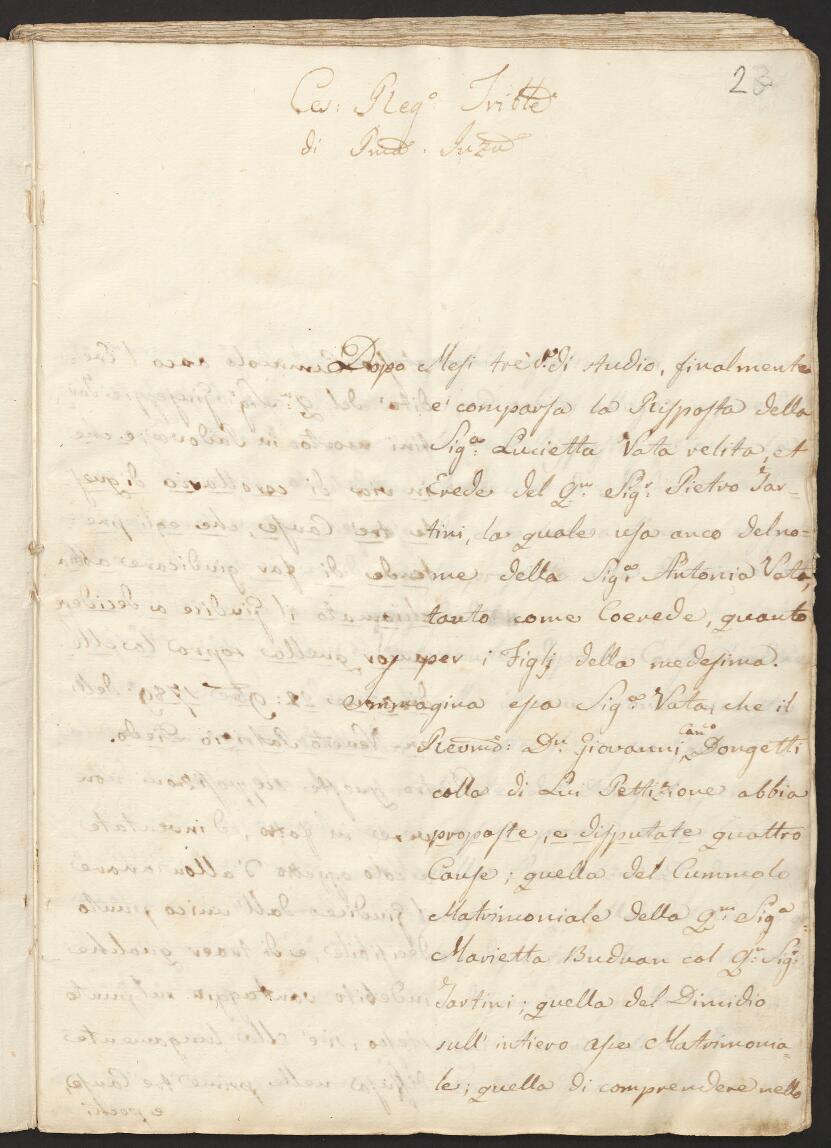 23
Ces: Reg.º Trible
di Pma. Inza
Dopo Mesi trè di studio, finalmente
e' comparsa la Risposta della
Sig.ª Lucietta Vata relita, et
Erede del Q.m Sig.r Pietro Tar-
tini, la quale usa anco del no-
me della Sig.ª Antonia Vata,
tanto come Coerede, quanto
per i Figlj della medesima.
Immagina essa Sig.ª Vata, che il
Revmd: Dn. Giovanni Can.º Dongetti
colla di Lui Pettizione abbia
proposte, e disputate quattro
Cause; quella del Cummolo
Matrimoniale della Q.m Sig.ª
Marietta Buduan col Q.m Sig.r
Tartini; quella del Dimidio
sull' intiero asse Matrimonia-
le; quella di comprendere nello